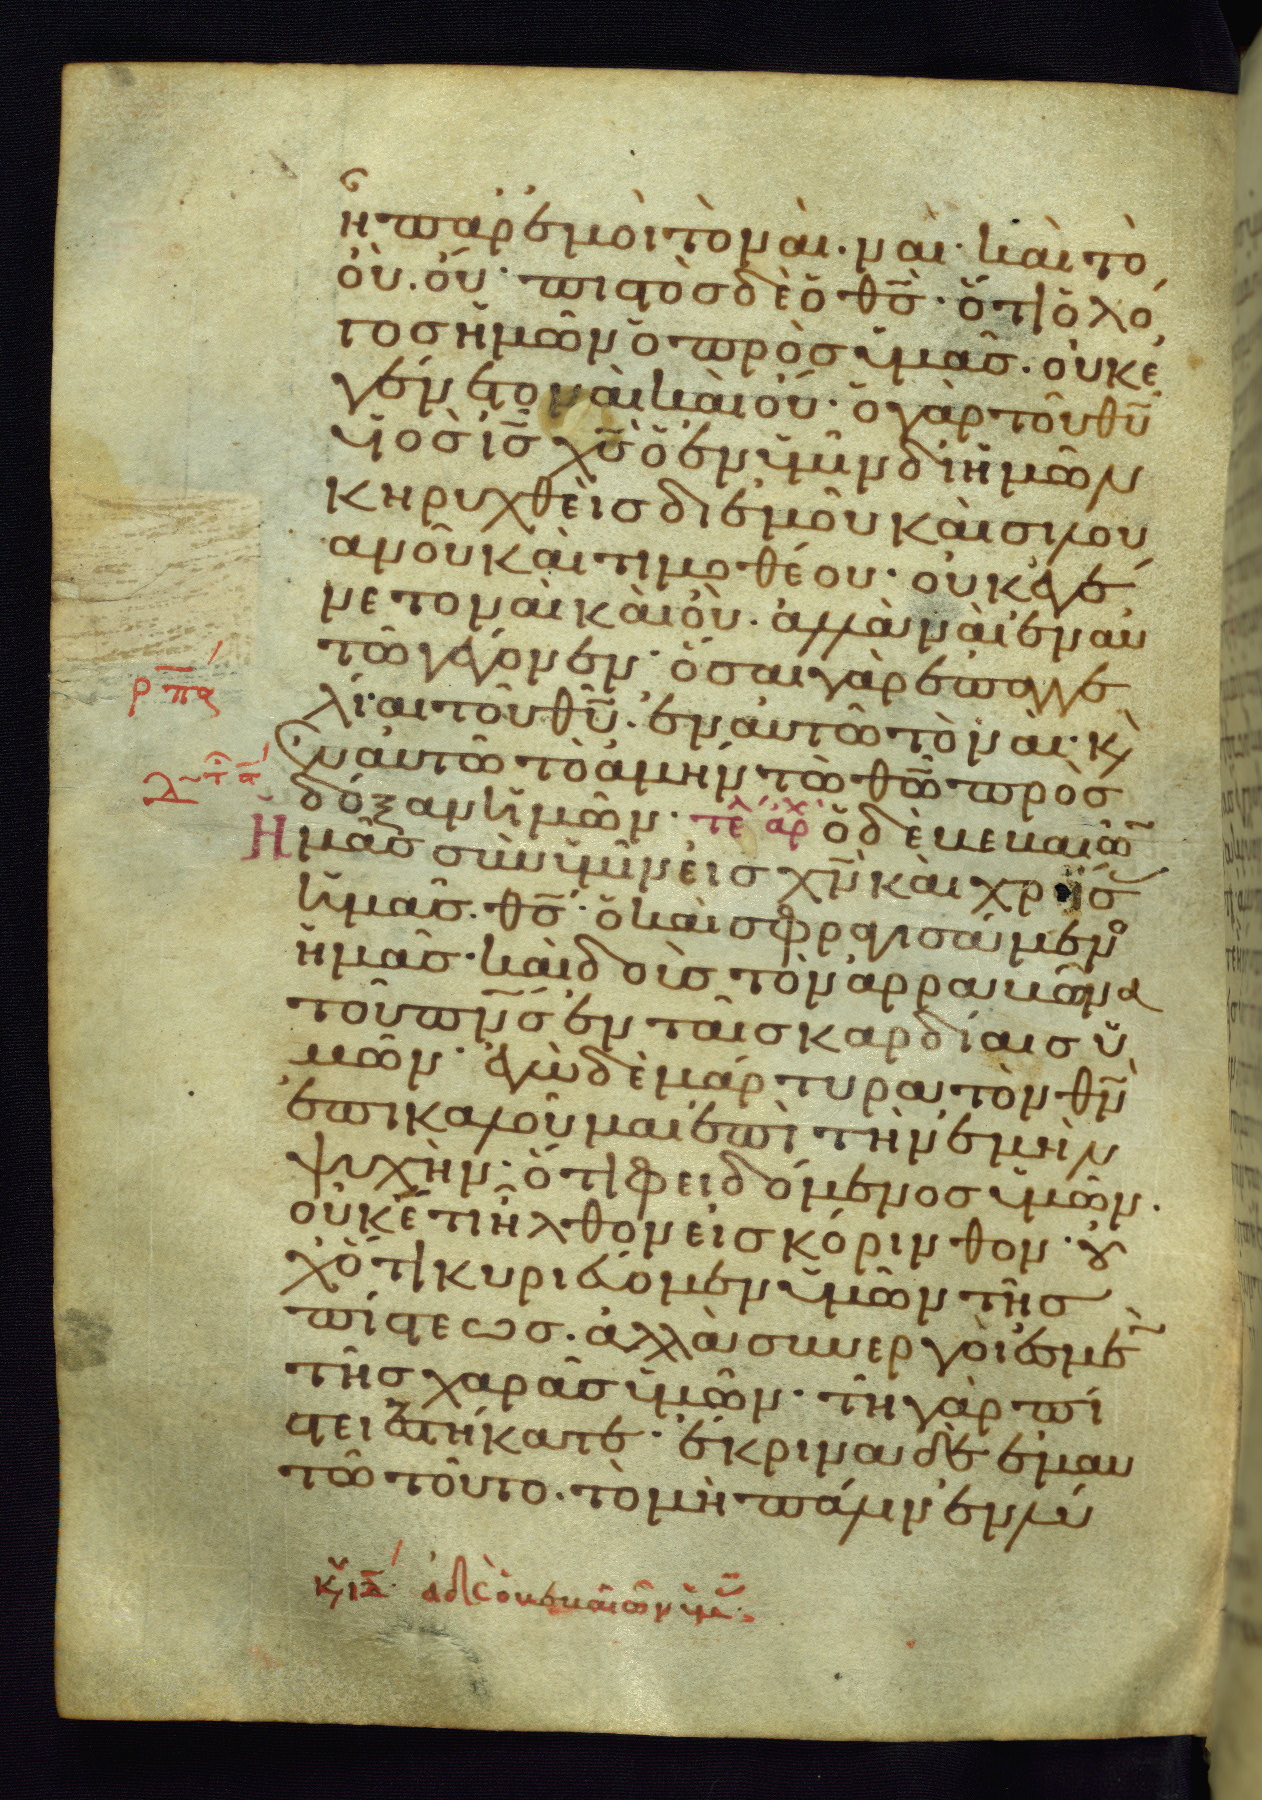 ἢ παρ' ἐμοὶ τὸ ναὶ· ναὶ· καὶ τὸ
οὒ· οὔ· πιστὸσ δὲ ὁ θ̅σ̅· ὅτι ὁ λό
γοσ ἡμῶν ὁ πρὸσ ὑμᾶσ· οὐκ ἐ
γένετο ναὶ καὶ οὔ· ὁ γὰρ τοῦ θ̅υ̅
ὑὸσ ι̅σ̅ χ̅σ̅ ὁ ἐν ὑμῖν δι ἡμῶν
κηρυχθεὶσ δι ἐμοῦ καὶ σιλου
ανοῦ καὶ τιμοθέου· οὐκ ἐγέ
νετο ναὶ καὶ οὒ· ἀλλὰ ναὶ ἐν αυ
τῶ γέγονεν· ὅσαι γὰρ ἐπαγγε
λίαι τοῦ θ̅υ̅· ἐν αὐτῶ τὸ ναὶ· κ̀
ἐν αὐτῶ τὸ ἀμὴν τῶ θ̅ω̅ πρὸσ
ρ̅π̅α̅
δόξαν ἡμῶν· τε ἀρχ ὁ δὲ βεβαιῶ
ἡμᾶσ σὺν ὑμῖν εἰσ χ̅ν̅ καὶ χρίσ
ἡμᾶσ· θ̅σ̅· ὁ καὶ σφραγισάμενο
ἡμᾶσ· καὶ δοὺσ τὸν ἀρραβῶνα
τοῦ π̅ν̅σ̅ ἐν ταῖσ καρδίαισ ὑ
μῶν· ἐγὼ δὲ μάρτυρα τὸν θ̅ν̅
ἐπικαλοῦμαι ἐπὶ τὴν ἐμὴν
ψυχὴν· ὅτι φειδόμενοσ ὑμῶν·
οὐκέτι ἦλθον εἰσ κόρινθον· οὐ
χ ὅτι κυριεύομεν ὑμῶν τῆσ
πίστεωσ· ἀλλὰ συνεργοὶ ἐσμε̅
τῆσ χαρᾶσ ὑμῶν· τῆ γὰρ πί
στει ἑστήκατε· ἔκρινα δὲ ἐμαυ
τῶ τοῦτο· τὸ μὴ πάλιν ἐν λύ